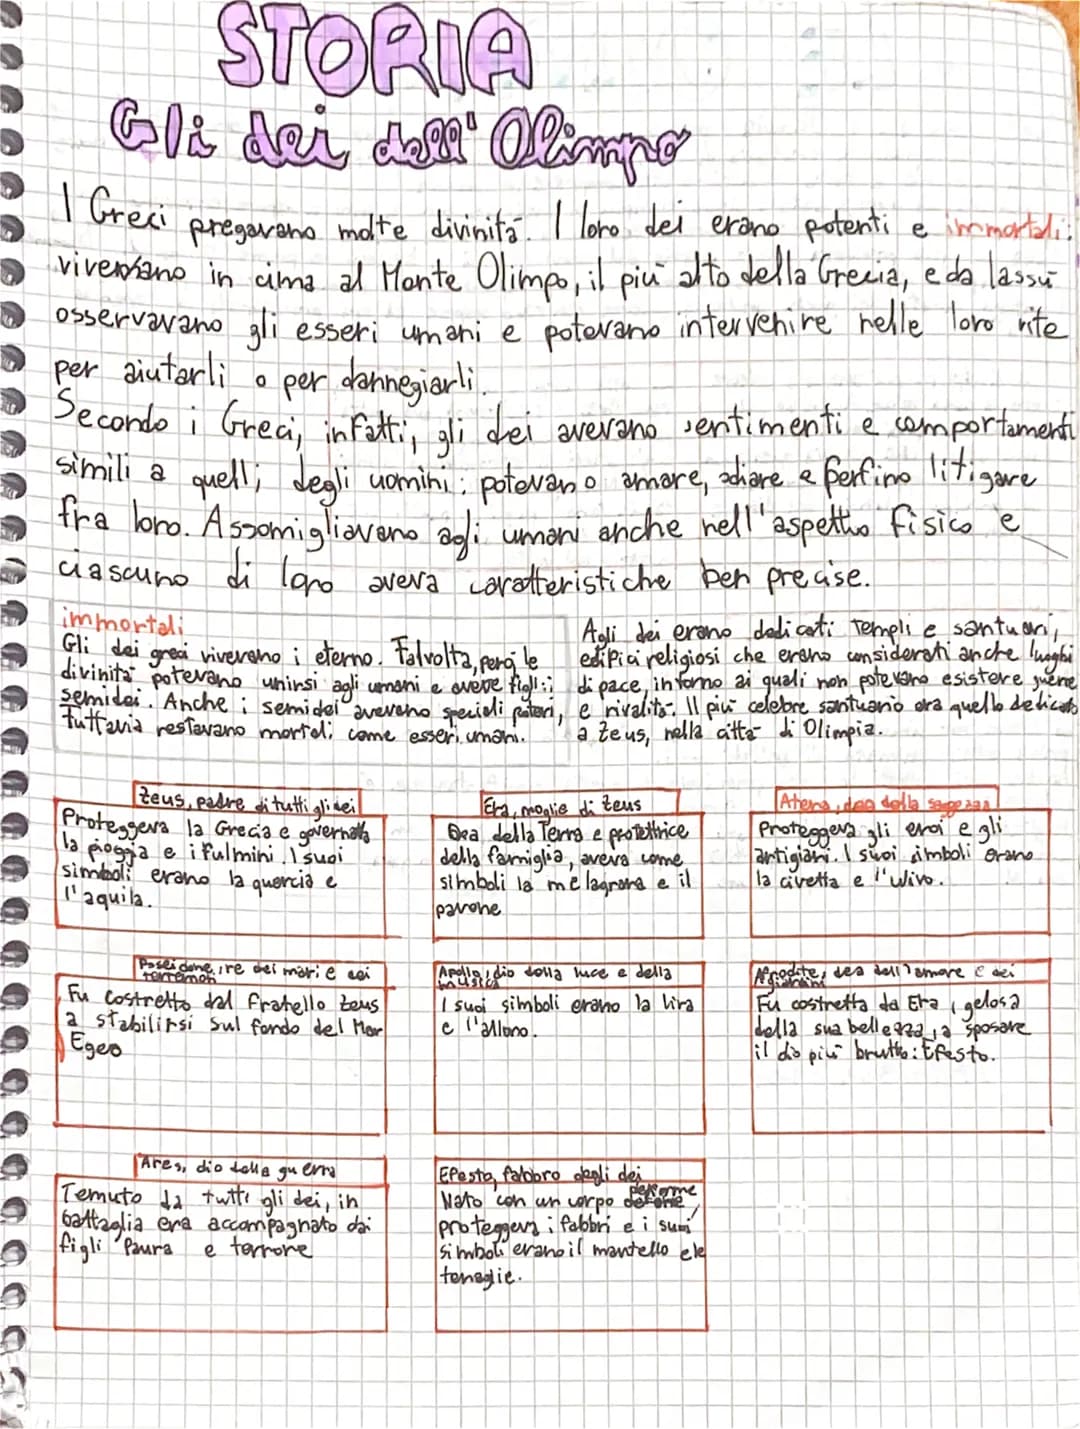 STORIA
Gli dei dell'Olimpo
I Greci pregavano molte divinità. I loro dei erano potenti e immortali:
vivevano in cima al Monte Olimpo, il più alto della Grecia, e da lassù
osservavano gli esseri umani e potevano intervenire nelle loro vite
per aiutarli o per dannegiarli.
Secondo i Greci, infatti, gli dei avevano sentimenti e comportamenti
simili a quelli degli uomini: potevano amare, odiare e perfino litigare
fra loro. Assomigliavano agli umani anche nell'aspetto fisico e
ciascuno di loro aveva caratteristiche ben precise.
immortali
Gli dei greci vivevano i eterno. Talvolta, però, le
divinità potevano unirsi agli umani e avere figli: i
semidei. Anche i semidei avevano speciali poteri,
tuttavia restavano mortali come esseri umani.
Agli dei erano dedicati templi e santuari,
edifici religiosi che erano considerati anche luoghi
di pace, intorno ai quali non potevano esistere guerre
e rivalità. Il più celebre santuario era quello dedicato
a Zeus, nella città di Olimpia.
Zeus, padre di tutti gli dei
Proteggeva la Grecia e governava
la pioggia e i fulmini. I suoi
simboli erano la quercia e
l'aquila.
Era, moglie di Zeus
Dea della Terra e protettrice
della famiglia, aveva come
simboli la melagrana e il
pavone
Atena, dea della saggezza
Proteggeva gli eroi e gli
artigiani. I suoi simboli erano
la civetta e l'ulivo.
Poseidone, re dei mari e dei
terremoti
Fu costretto dal fratello Zeus
a stabilirsi sul fondo del Mar
Egeo
Apollo, dio della luce e della
musica
I suoi simboli erano la lira
e l'alloro.
Afrodite, dea dell'amore e dei
giardini
Fu costretta da Era, gelosa
della sua bellezza, a sposare
il dio più brutto: Efesto.
Ares, dio della guerra
Temuto da tutti gli dei, in
battaglia era accompagnato dai
figli Paura e terrore
Efesto, fabbro degli dei
Nato con un corpo deforme,
proteggeva i fabbri e i suoi
simboli erano il mantello e le
tenaglie.